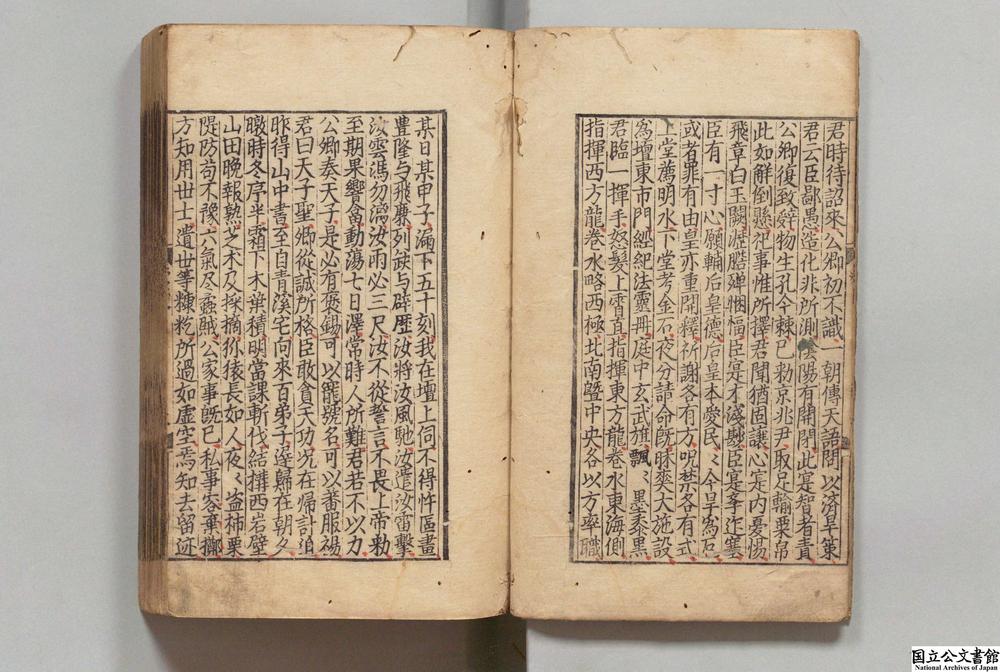 君時待詔來公卿初不識一朝傳天語問以済旱策
君云臣鄙愚造化非所測陰陽有開閇此寔智者責
公卿復致辝物生孔今棘已勑京兆尹取足輸粟帛
此如觧倒懸祀事惟所擇君聞猶固讓心寔内憂惕
飛章白玉闕瀝膽殫悃愊臣寔才淺尠臣寔學迮塞
臣有一寸心願輔后皇德后皇本愛民〻今旱為厄
或者罪有由皇亦重開釋祈謝各有方呪禁各有式
上堂薦明水下堂考金石夜分請命旣昧爽大施設
為壇東市門經紀法靈冊庭中玄武旗飄〻墨黍黒
君臨一揮手怒髮上霄直指揮東方龍卷水東海側
指揮西方龍卷水略西極北南曁中央各以方率職
某日某甲子漏下五十刻我在壇上伺不得忤區畫
豊隆与飛廉列缺与辟歷汝將汝風馳汝遣汝雷擊
汝雲馮勿瀉汝雨必三尺汝不從誓言不畏上帝勑
至期果響會動蕩七日澤常時人所難君若不以力
公卿奏天子是必有褒錫可以寵號名可以蕃服裼
君曰天子聖卿從誠所格臣敢貪天功况在帰計迫
昨得山中書至自青溪宅向來百弟子遅歸在朝夕
暾時冬序半霜下木葉積明當課斬伐結撰西岩壁
山田晚報熟芝术及採摘狝猿長如人夜〻盗柿栗
隄防苟不豫六氣尽蟊賊公家事旣已私事寧棄擲
方知用世士遺世等糠籺所過如虚空焉知去留迹
国立公文書館
National Archives of Japan